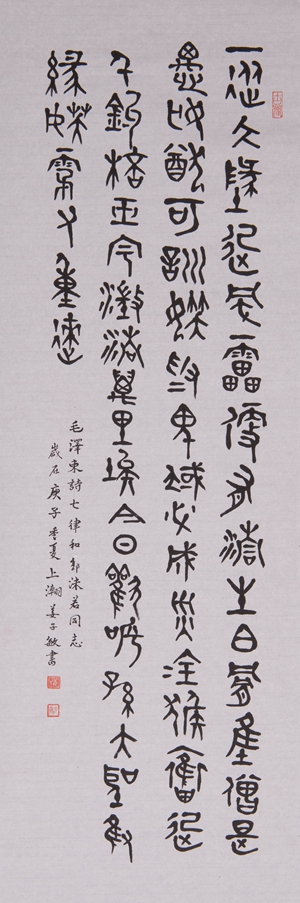 一從大地起風雷便有精生白骨堆僧是
愚氓猶可訓妖為鬼蜮必成災金猴奮起
千鈞棒玉宇澄清萬里埃今日歡呼孫大聖只
緣妖霧又重來
毛澤東詩七律和郭沫若同志
歲在庚子季夏上瀚姜子敏書